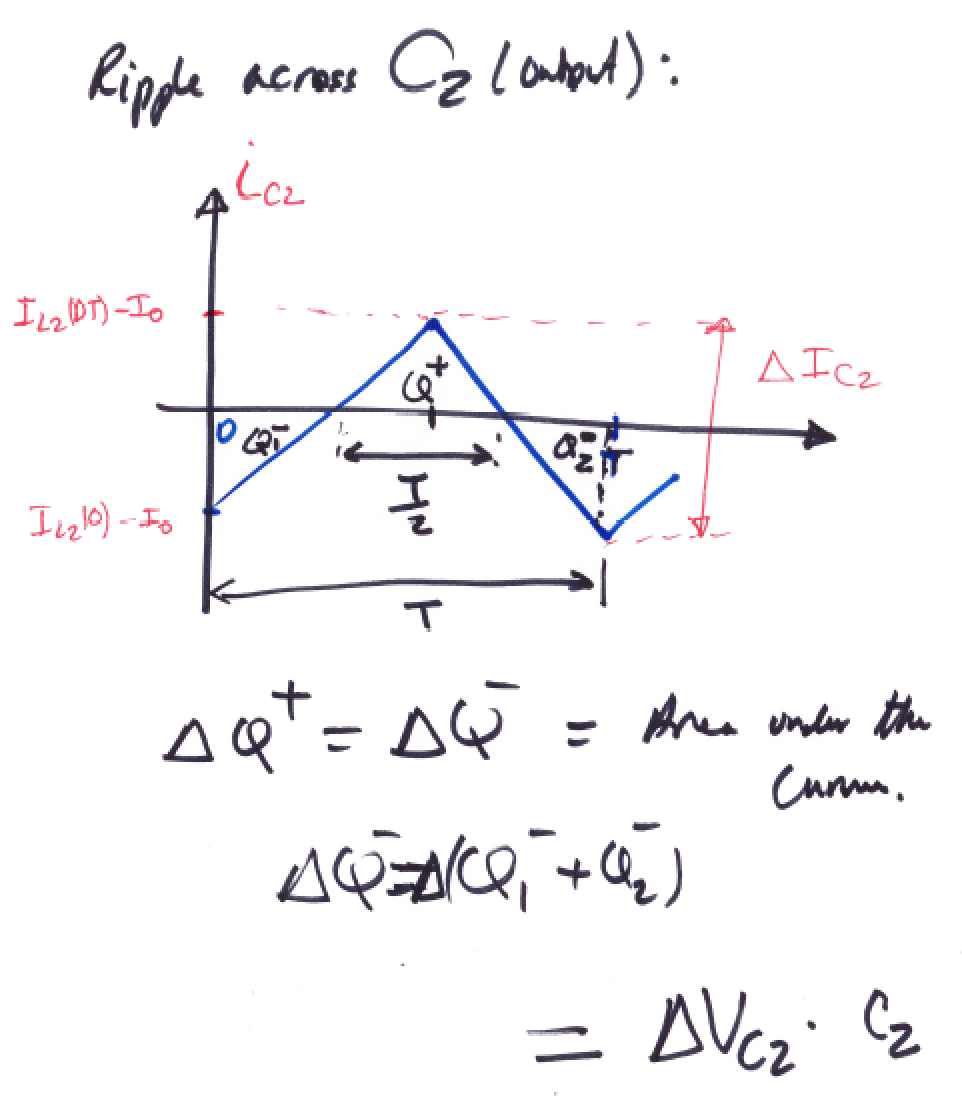 Ripple across C₂ (output):
i_C2
I_L2(DT) - I_0
Q_1^+
Δ I_C2
0
Q_1^-
Q_2^-
T
T/2
I_L2(0) - I_0
T
ΔQ^+ = ΔQ^- = Area under the
ΔQ^- = Δ(Q_1^- + Q_2^-)
= ΔV_C2 · C_2